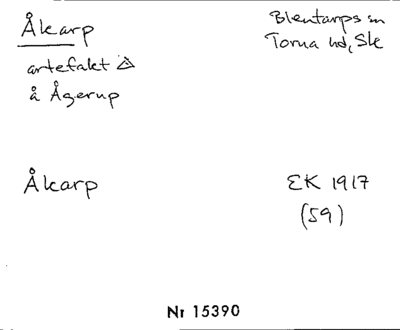 Åkarp
Blentarps sn
Torna hd, Sk
artefakt
å Ågerup
Åkarp
EK 1917
(59)
Nr 15390